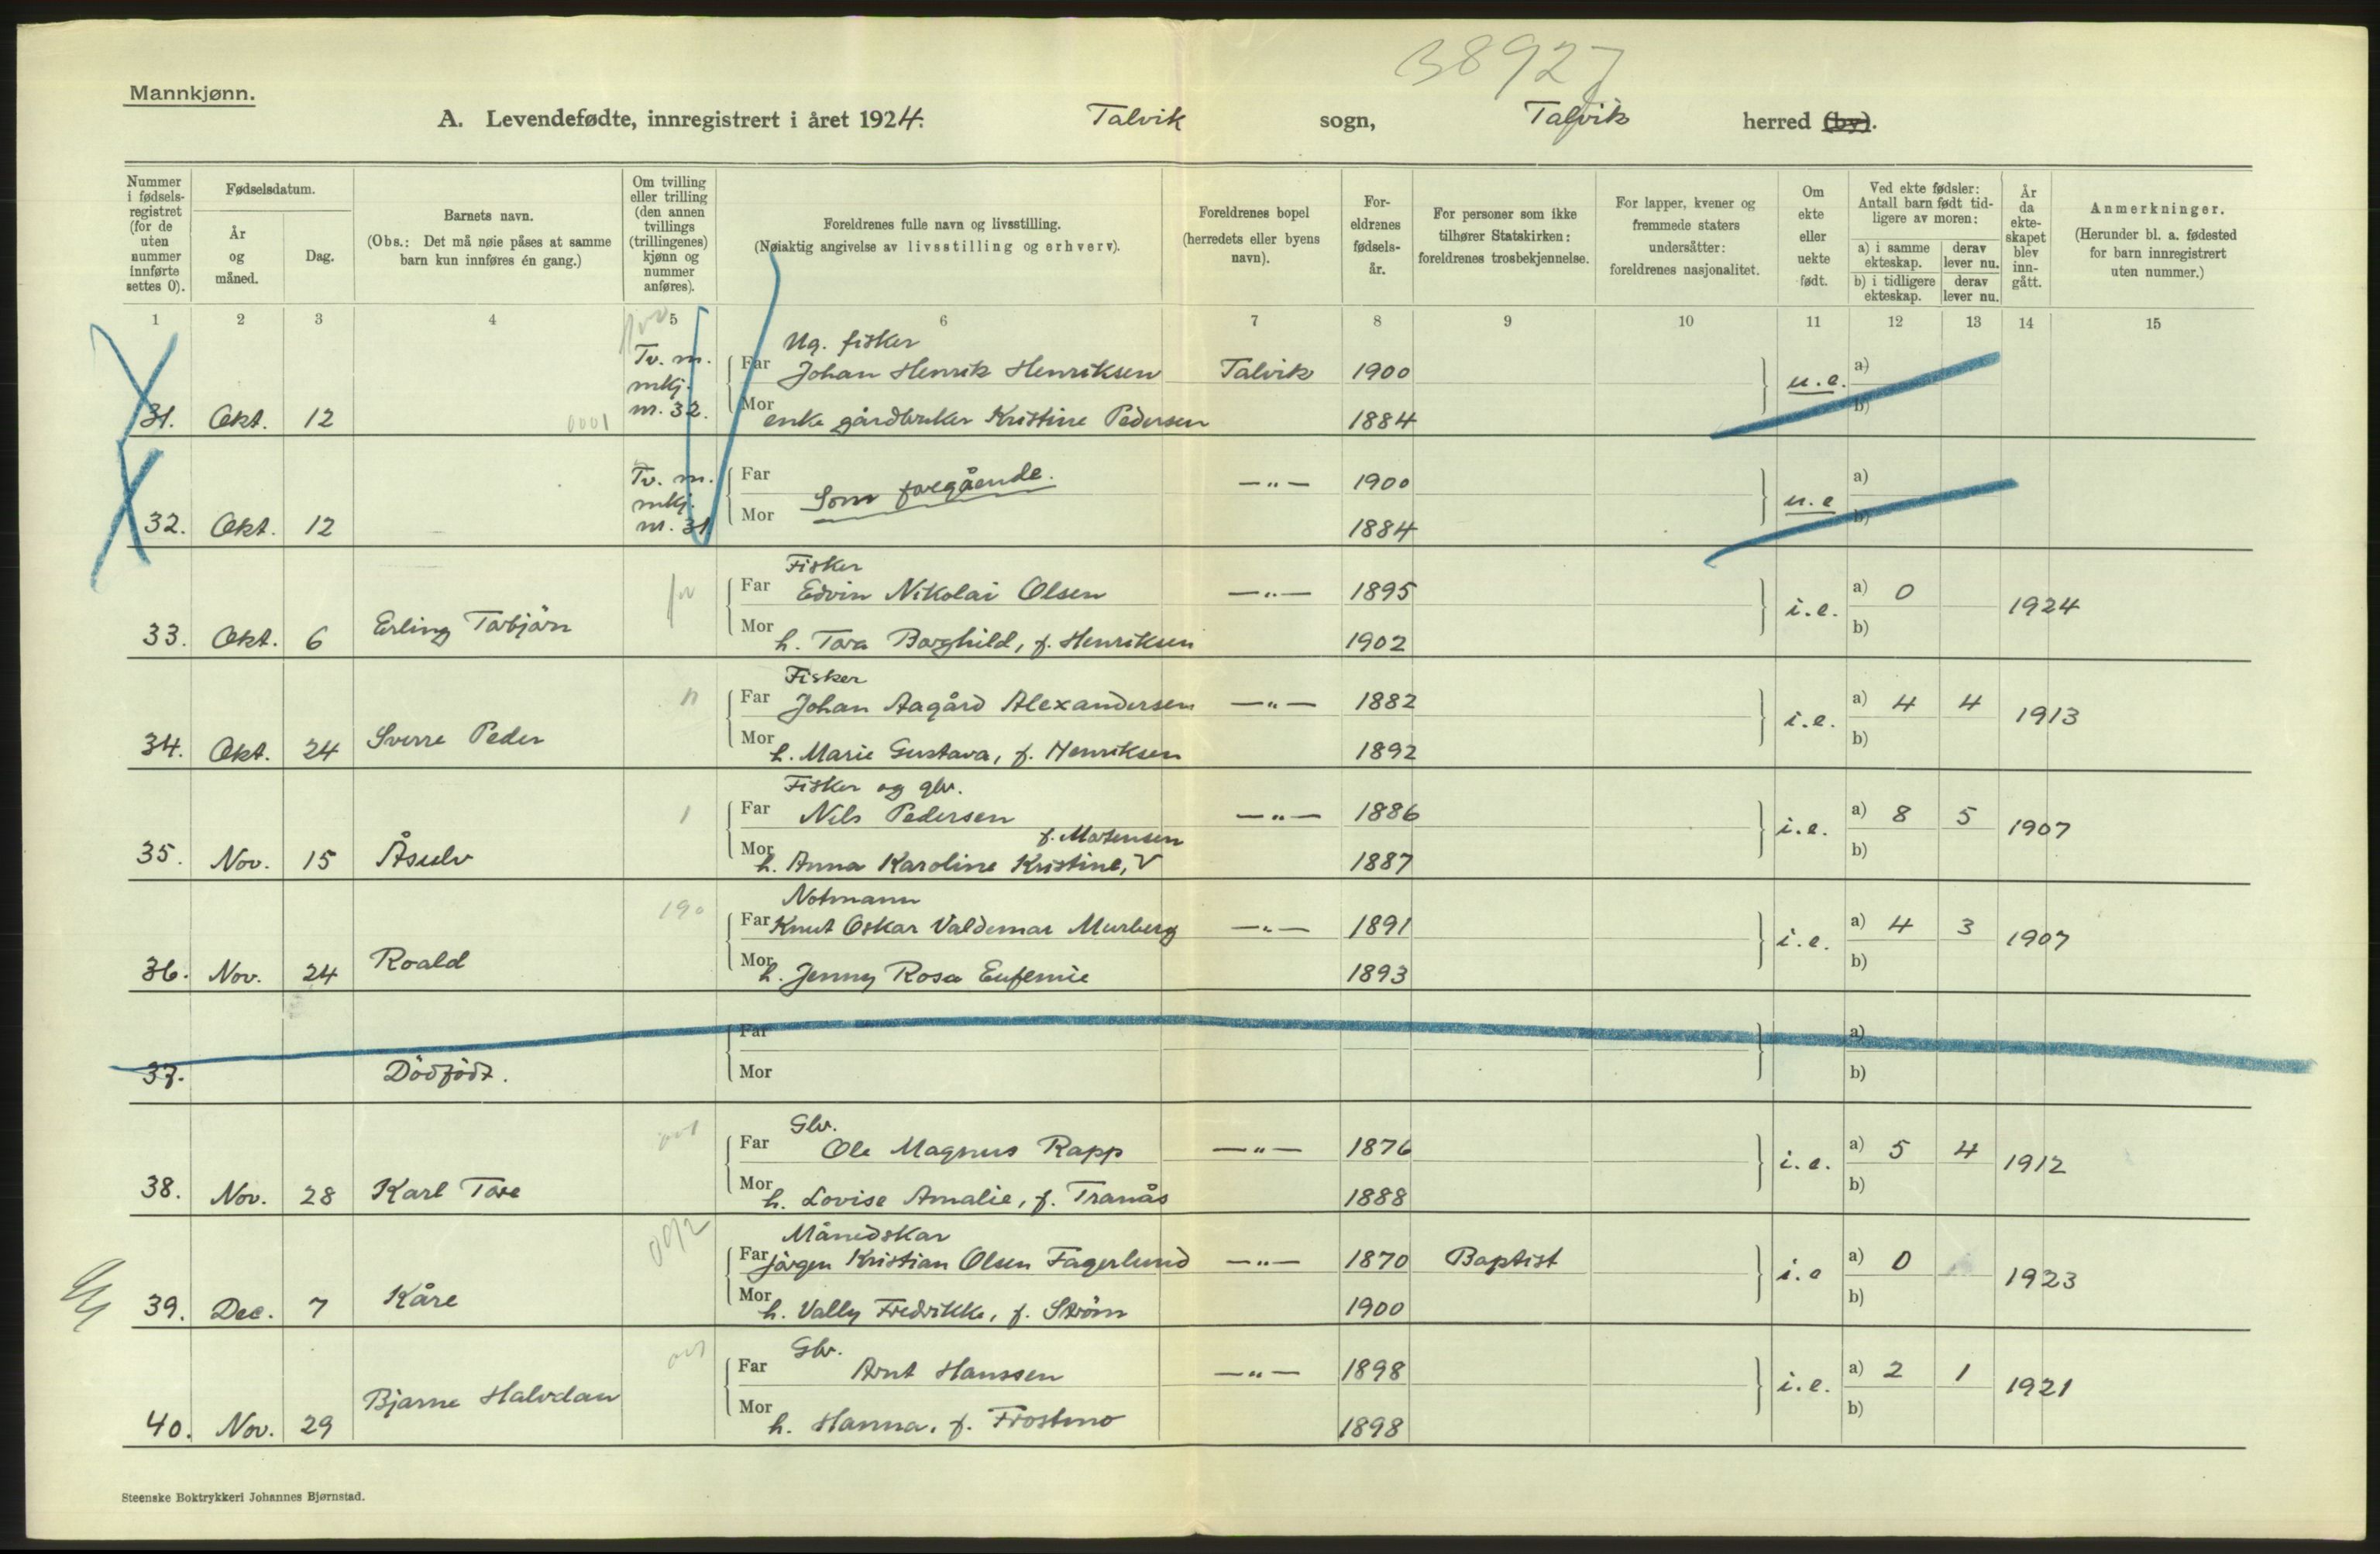 38927
Mannkjønn.
A. Levendefødte, innregistrert i året 1924. Talvik sogn, Talvik herred (by).
Nummer i fødsels-registret (for de uten nummer innførte settes 0).
Fødselsdatum.
År og måned.
Dag.
Barnets navn.
(Obs.: Det må nøie påses at samme barn kun innføres én gang.)
Om tvilling eller trilling (den annen tvillings (trillingenes) kjønn og nummer anføres).
Foreldrenes fulle navn og livsstilling.
(Nøiaktig angivelse av livsstilling og erhverv).
Foreldrenes bopel (herredets eller byens navn).
For-eldrenes fødsels-år.
For personer som ikke tilhører Statskirken: foreldrenes trosbekjennelse.
For lapper, kvener og fremmede staters undersåtter: foreldrenes nasjonalitet.
Om ekte eller uekte født.
Ved ekte fødsler: Antall barn født tid-ligere av moren:
a) i samme ekteskap. derav lever nu.
b) i tidligere ekteskap. derav lever nu.
År da ekte-skapet blev inn-gått.
Anmerkninger.
(Herunder bl. a. fødested for barn innregistrert uten nummer.)
1 2 3 4 5 6 7 8 9 10 11 12 13 14 15
Ug. fisker
Tv. m. mkj. nr. 32. Far Johan Henrik Henriksen Talvik 1900 u.e. a) b)
31. Okt. 12 0001 Mor enke gårdbruker Kristine Pedersen 1884
Tv. m. mkj. nr. 31 Far Som foregående. —"— 1900 u.e a) b)
32. Okt. 12 Mor 1884
Fisker
Far Edvin Nikolai Olsen —"— 1895 i.e. a) 0 1924
33. Okt. 6 Erling Torbjörn Mor h. Tora Borghild, f. Henriksen 1902 b)
Fisker
Far Johan Aagård Alexandersen —"— 1882 i.e. a) 4 4 1913
34. Okt. 24 Sverre Peder Mor h. Marie Gustava, f. Henriksen 1892 b)
Fisker og gbr.
Far Nils Pedersen —"— 1886 i.e. a) 8 5 1907
f. Mortensen
35. Nov. 15 Åsulv Mor h. Anna Karoline Kristine, V 1887 b)
Notmann
190 Far Knut Oskar Valdemar Murberg —"— 1891 i.e. a) 4 3 1907
36. Nov. 24 Roald Mor h. Jenny Rosa Eufemie 1893 b)
Far a)
37. Dödfödt. Mor b)
Gbr.
Far Ole Magnus Rapp —"— 1876 i.e. a) 5 4 1912
38. Nov. 28 Karl Tore Mor h. Lovise Amalie, f. Tranås 1888 b)
Månedskar
Far Jörgen Kristian Olsen Fagerlund —"— 1870 Baptist i.e a) 0 1923
39. Dec. 7 Kåre Mor h. Vally Fredrikke, f. Ström 1900 b)
Gbr.
Far Arnt Hanssen —"— 1898 i.e. a) 2 1 1921
40. Nov. 29 Bjarne Halvdan Mor h. Hanna, f. Frostmo 1898 b)
Steenske Boktrykkeri Johannes Bjørnstad.